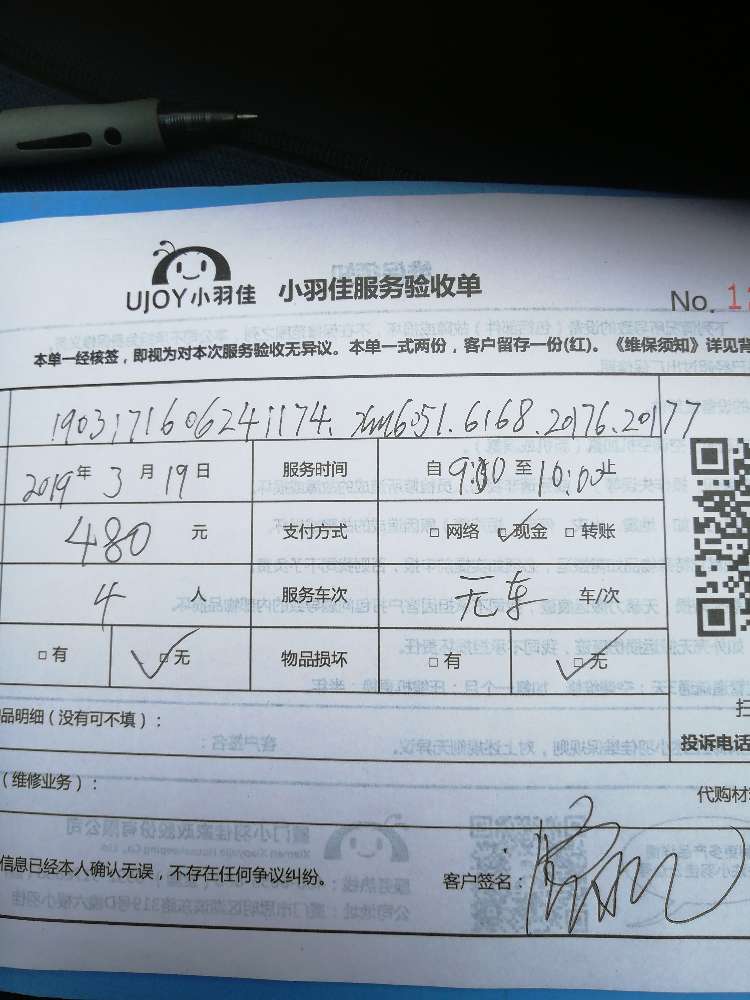 UJOY小羽佳 小羽佳服务验收单
No. 1
本单一经核签，即视为对本次服务验收无异议。本单一式两份，客户留存一份(红)。《维保须知》详见背
19031716062411174. xm6051.6168.20176.20177
2019年3月19日 服务时间 自9:00至10:00止
480元 支付方式 □网络 ☑现金 □转账
4人 服务车次 无车 车/次
□有 ☑无 物品损坏 □有 ☑无
品明细（没有可不填）：
投诉电话
（维修业务）：
代购材
信息已经本人确认无误，不存在任何争议纠纷。 客户签名：